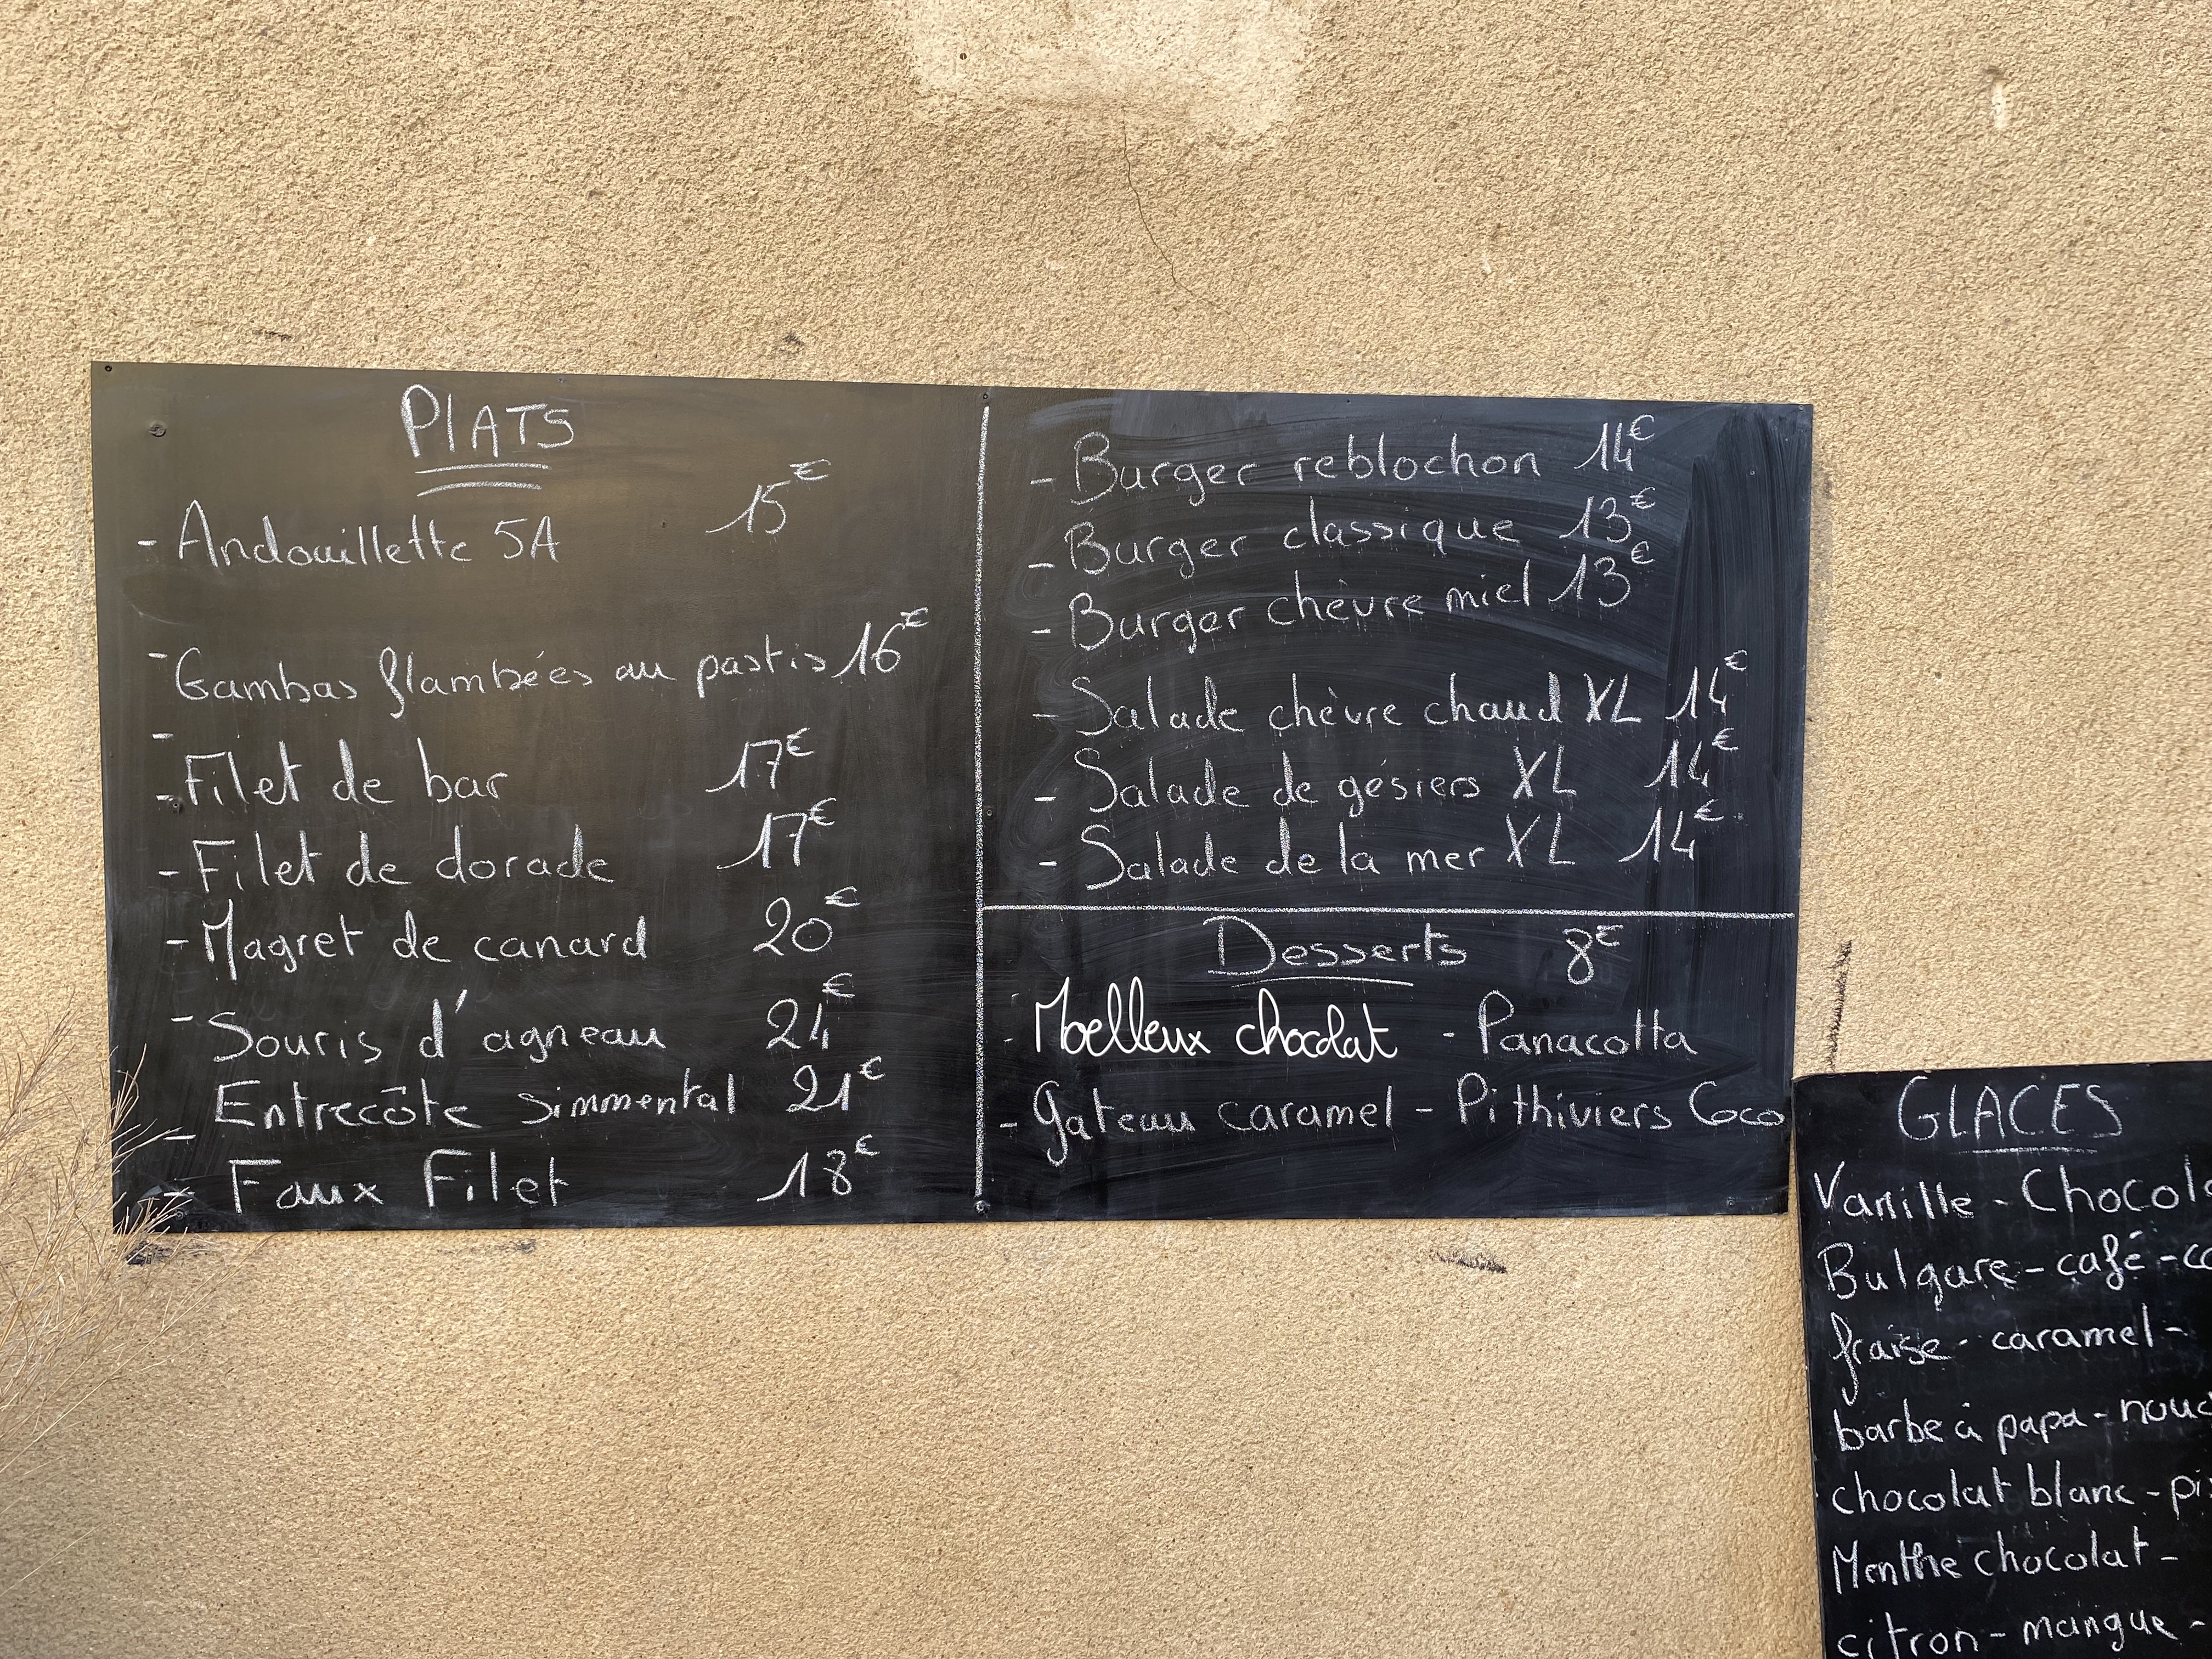 PLATS
- Andouillette 5A 15€
- Gambas flambées au pastis 16€
-
- Filet de bar 17€
- Filet de dorade 17€
- Magret de canard 20€
- Souris d'agneau 21€
- Entrecôte simmental 21€
- Faux Filet 18€
- Burger reblochon 14€
- Burger classique 13€
- Burger chèvre miel 13€
- Salade chèvre chaud XL 14€
- Salade de gésiers XL 14€
- Salade de la mer XL 14€
Desserts 8€
- Moelleux chocolat - Panacotta
- Gateau caramel - Pithiviers Coco
GLACES
Vanille - Chocola
Bulgare - café - co
fraise - caramel -
barbe à papa - noug
chocolat blanc - pis
Menthe chocolat -
citron - mangue -